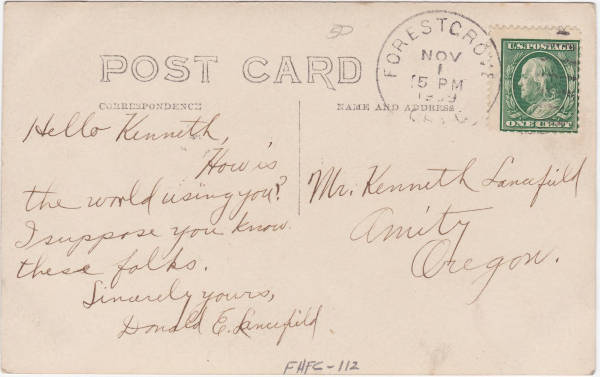 50
POST CARD
CORRESPONDENCE
NAME AND ADDRESS
FOREST GROVE
NOV
1
5 PM
1909
U.S. POSTAGE
ONE CENT
Hello Kenneth,
How is
the world using you?
I suppose you know
these folks.
Sincerely yours,
Donald E. Lancefield
Mr. Kenneth Lancefield
Amity
Oregon.
FHFC-112